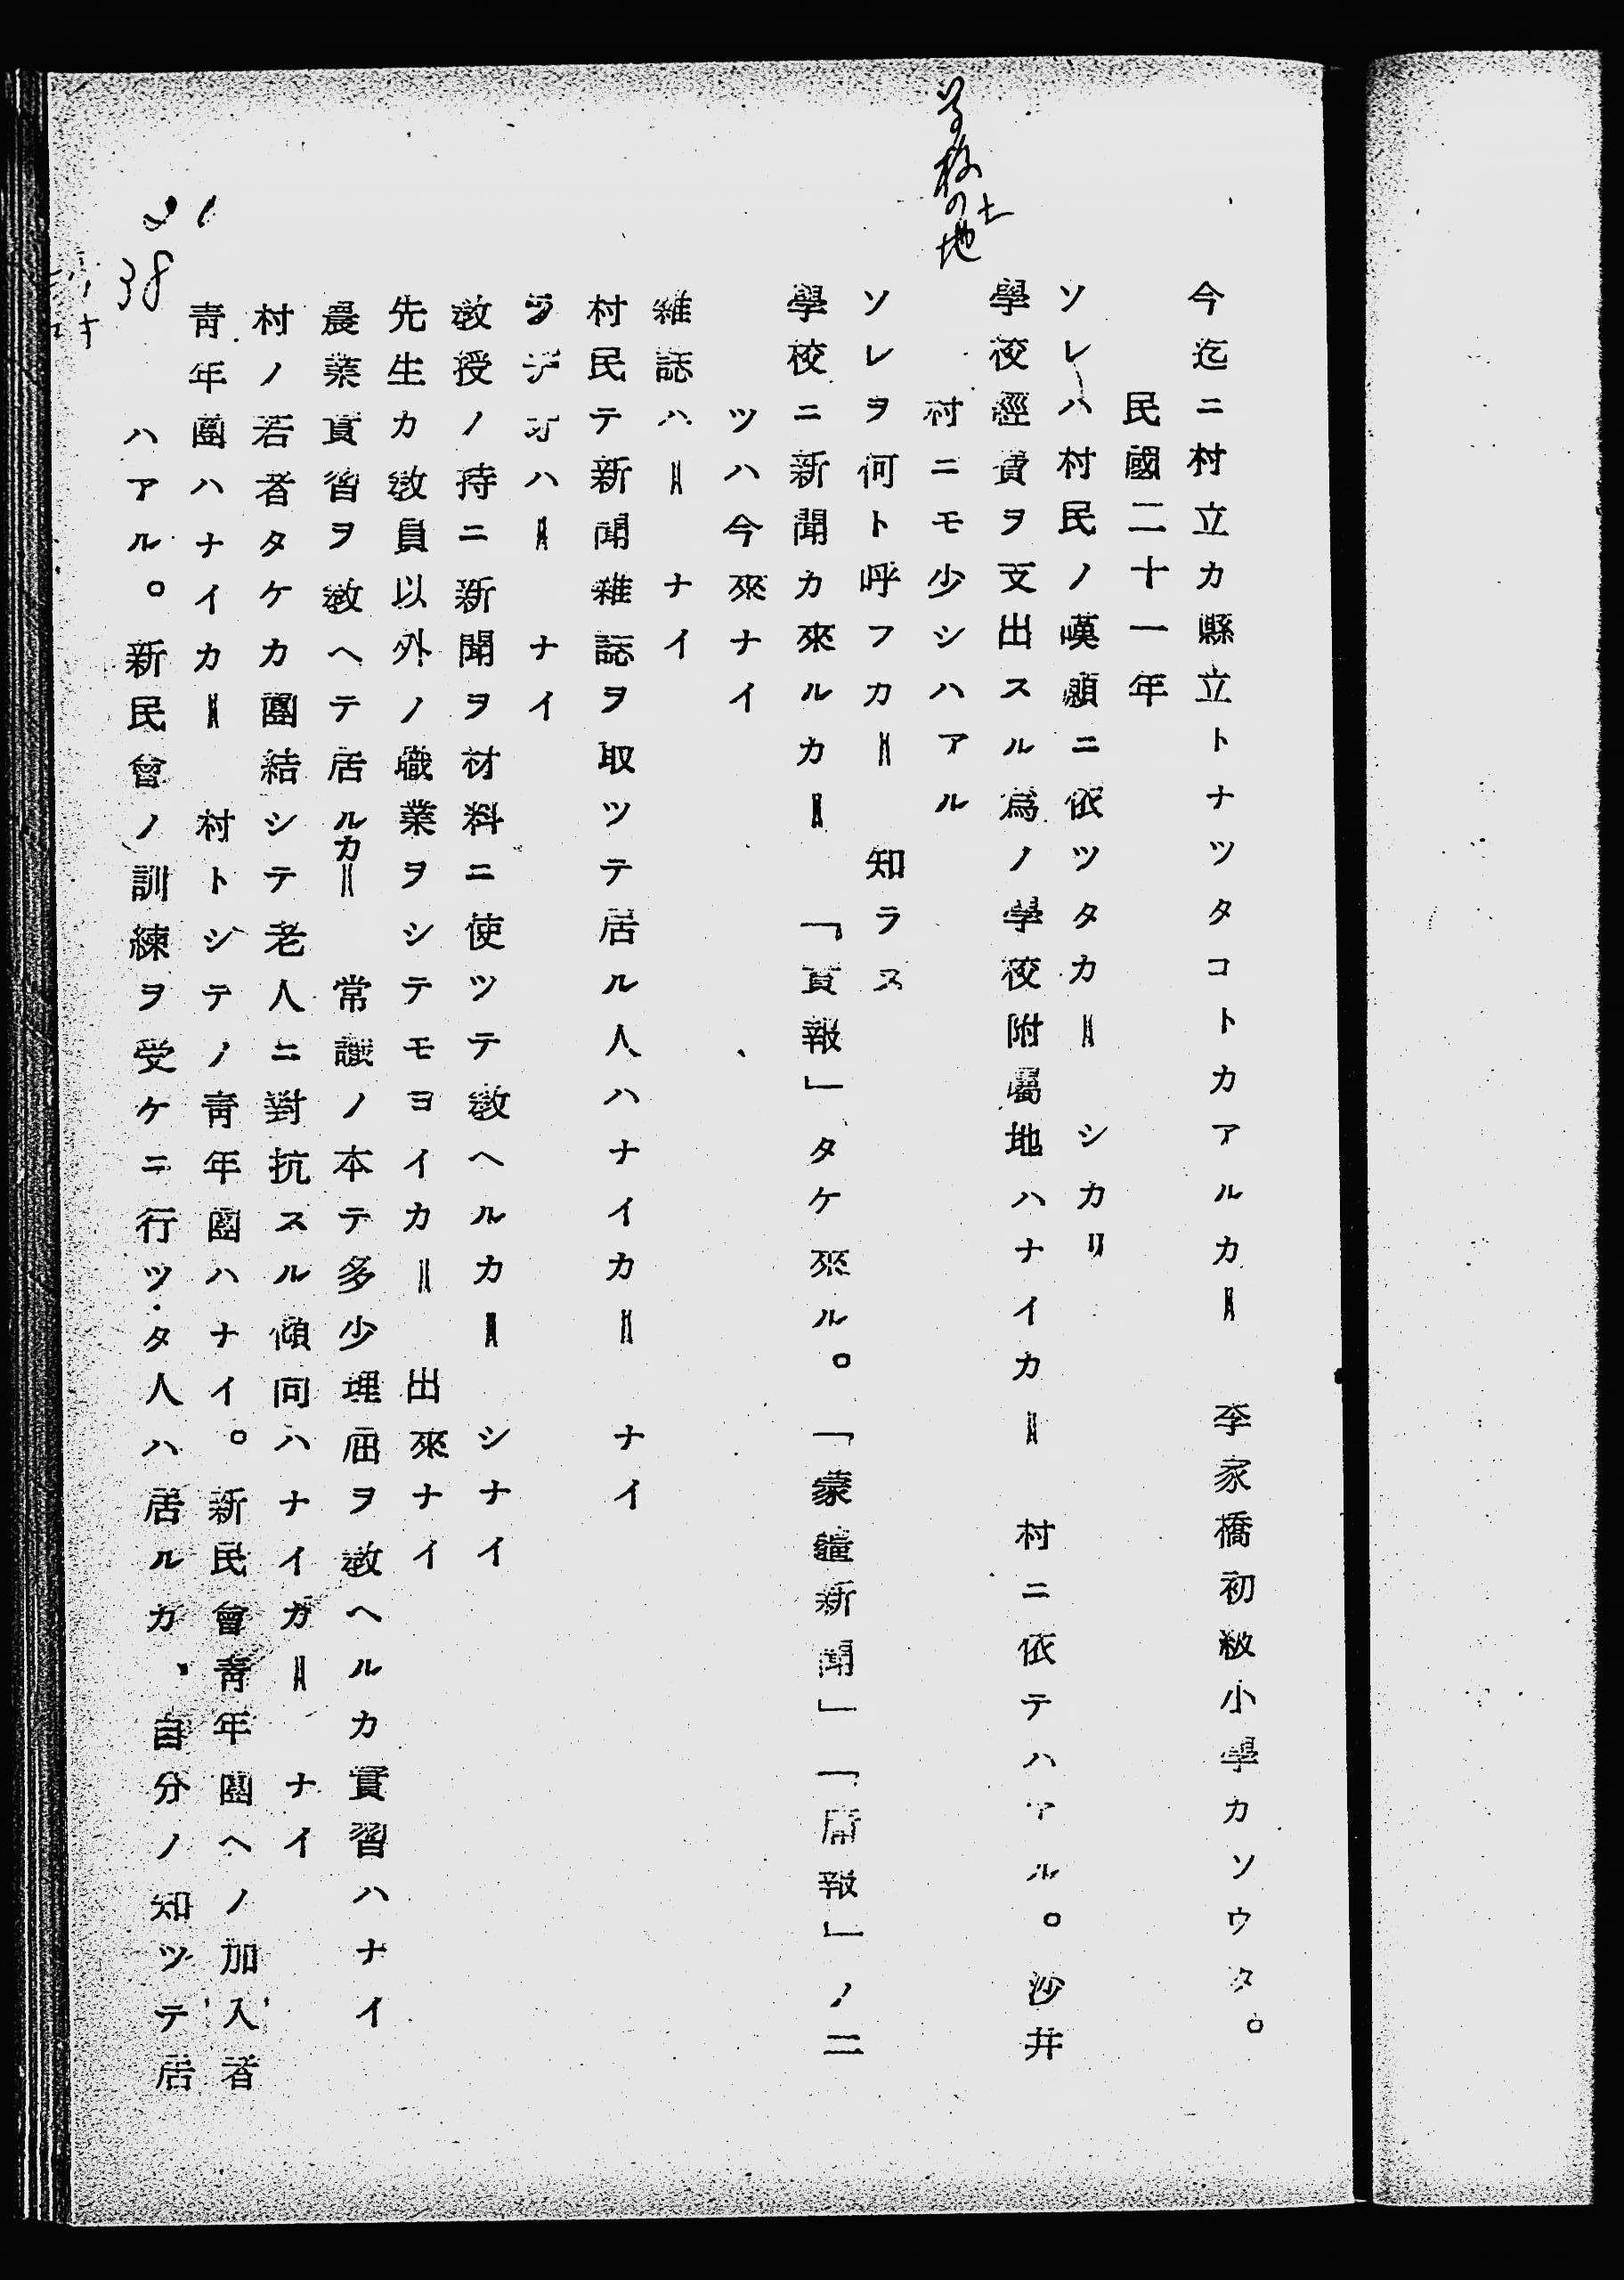 学校の土地
今迄ニ村立カ縣立トナツタコトカアルカ＝　李家橋初級小學カソウタ。
民國二十一年
ソレハ村民ノ嘆願ニ依ツタカ＝　シカリ
學校經費ヲ支出スル爲ノ學校附屬地ハナイカ＝　村ニ依テハアル。沙井
村ニモ少シハアル
ソレヲ何ト呼フカ＝　知ラヌ
學校ニ新聞カ來ルカ＝　「實報」タケ來ル。「蒙疆新聞」「庸報」ノ二
ツハ今來ナイ
雜誌ハ＝　ナイ
村民テ新聞雜誌ヲ取ツテ居ル人ハナイカ＝　ナイ
ラヂオハ＝　ナイ
敎授ノ持ニ新聞ヲ材料ニ使ツテ敎ヘルカ＝　シナイ
先生カ敎員以外ノ職業ヲシテモヨイカ＝　出來ナイ
農業實習ヲ敎ヘテ居ルカ＝　常識ノ本テ多少理屈ヲ敎ヘルカ實習ハナイ
村ノ若者タケカ團結シテ老人ニ對抗スル傾向ハナイカ＝　ナイ
靑年團ハナイカ＝　村トシテノ靑年團ハナイ。新民會靑年團ヘノ加入者
ハアル。新民會ノ訓練ヲ受ケニ行ツタ人ハ居ルカ、自分ノ知ツテ居
21
38